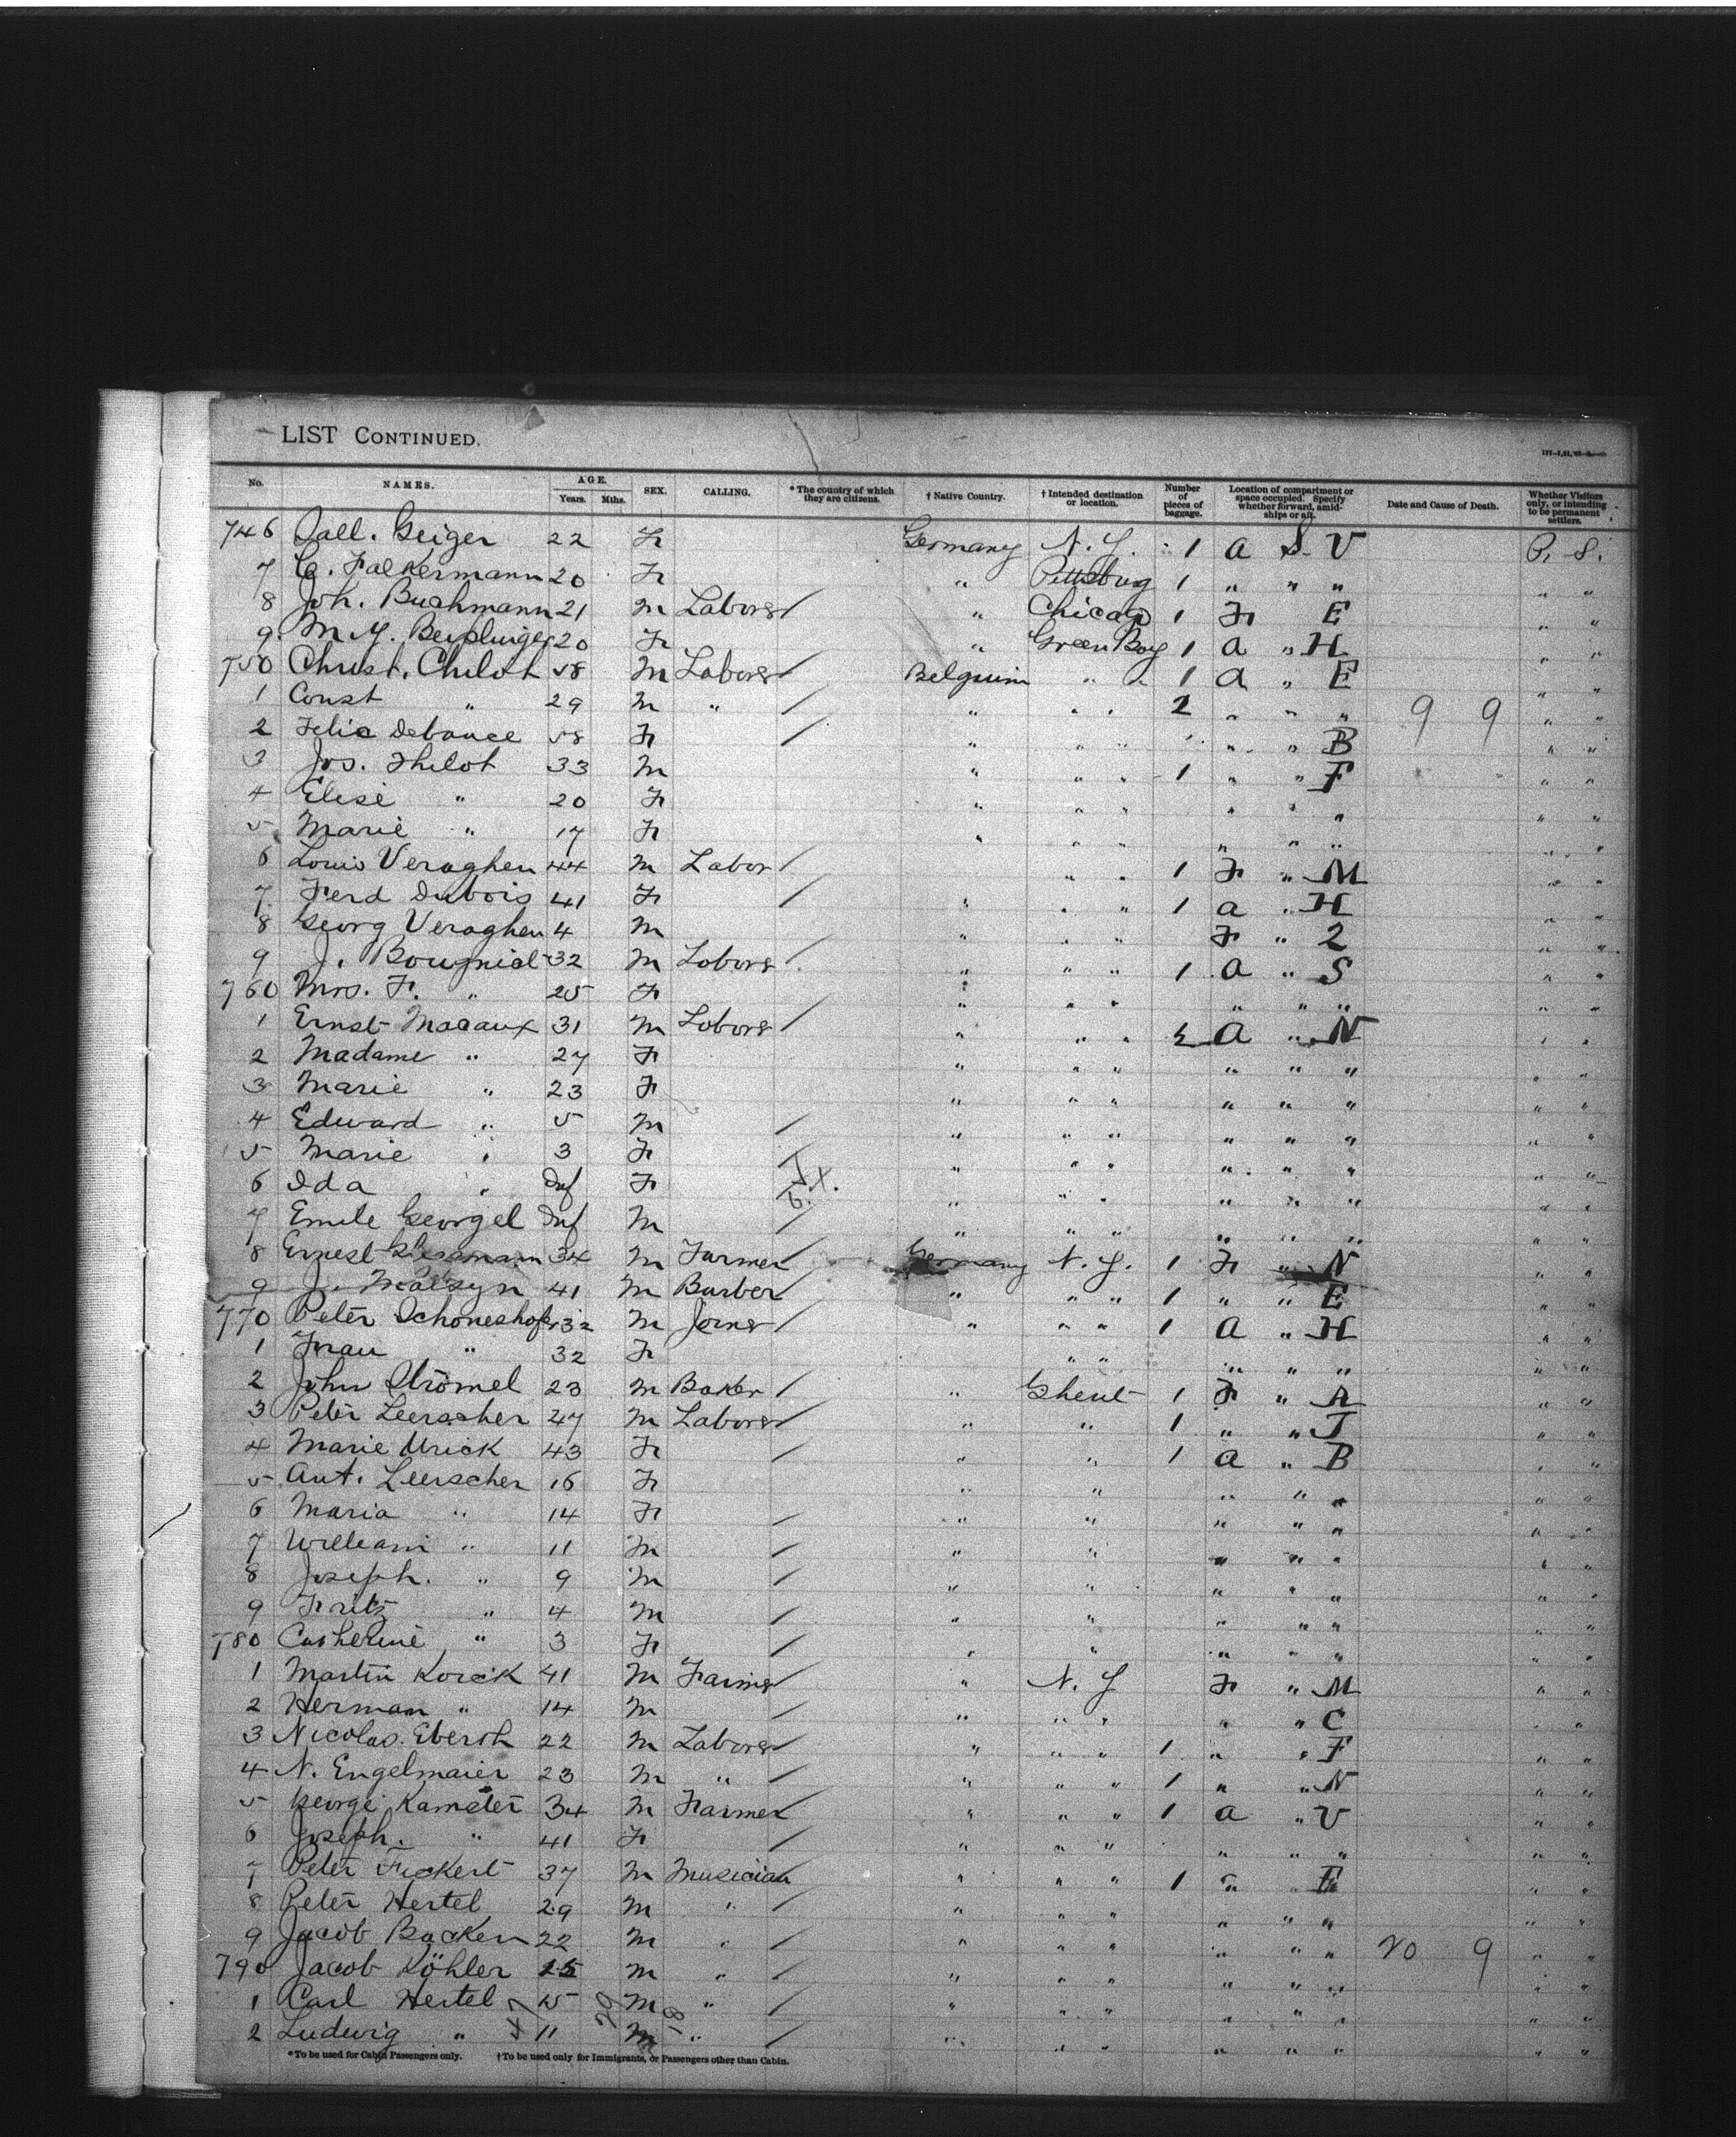 LIST CONTINUED.
No. NAMES. AGE. Years. Mths. SEX. CALLING. * The country of which they are citizens. † Native Country. † Intended destination or location. Number of pieces of baggage. Location of compartment or space occupied. Specify whether forward, amidships or aft. Date and Cause of Death. Whether Visitors only, or intending to be permanent settlers.
746 Geiger 22 F Germany N. Y. 1 a S V P. S.
7 C. Falkermann 20 F " Pittsburg 1 " " " " "
8 Joh. Buchmann 21 M Labor / " Chicago 1 F E " "
9 M. 20 F " Green Bay 1 a " H " "
750 Christ. Chilot 58 M Labor / Belgium " " 1 a " E " "
1 Const " 29 M " / " " " 2 " " " 9 9 " "
2 Felic Debauce 58 F / " " " " " B " "
3 Jos. Thilot 33 M " " " 1 " " F " "
4 Elise " 20 F " " " " " " " "
5 Marie " 17 F " " " " " " " "
6 Louis Veraghen 44 M Labor / " " 1 F " M " "
7 Ferd Dubois 41 F / " " " 1 a " H " "
8 Georg Veraghen 4 M " " " F " 2 " "
9 J. 32 M Labor / " " " 1 a " S " "
760 Mrs. F. " 25 F " " " " " " " "
1 Ernst Macaux 31 M Labor / " " " a " N " "
2 Madame " 27 F " " " " " " " "
3 Marie " 23 F " " " " " " " "
4 Edward " 5 M / " " " " " " " "
5 Marie " 3 F / " " " " " " " "
6 Ida " Inf F " " " " " " " "
7 Emile Georgel Inf M / " " " " " " " "
8 Ernest 34 M Farmer / Germany N. Y. 1 F " N " "
9 J. 41 M Barber / " " " 1 " " E " "
770 Peter Schoneshofer 32 M Joiner / " " " 1 a " H " "
1 Frau " 32 F " " " " " " "
2 John Strömel 23 M Baker / " Ghent 1 F " A " "
3 Peter Leerscher 47 M Labor / " " 1 " " J " "
4 Marie Urick 43 F / " " 1 a " B " "
5 Ant. Leerscher 16 F " " " " " " "
6 Maria " 14 F / " " " " " " "
7 William " 11 M / " " " " " " "
8 Joseph. " 9 M / " " " " " " "
9 Fritz " 4 M / " " " " " " "
780 Catherine " 3 F / " " " " " " "
1 Martin Korcik 41 M Farmer / " N. Y F " M " "
2 Herman " 14 M / " " " " " C " "
3 Nicolas. Ebersh 22 M Labor / " " " 1 " " F " "
4 N. Engelmaier 23 M " / " " " 1 " " N " "
5 George Kamster 34 M Farmer " " " 1 a " V " "
6 Joseph. " 41 F / " " " " " " " "
7 Peter Fickert 37 M Musician " " " 1 " " E " "
8 Peter Hertel 29 M " / " " " " " " " "
9 Jacob Backer 22 M " / " " " " " " 20 9 " "
790 Jacob Köhler 15 M " / " " " " " " " "
1 Carl Hertel 15 M " / " " " " " " "
2 Ludwig " 11 M " / " " " " " " " "
*To be used for Cabin Passengers only. †To be used only for Immigrants, or Passengers other than Cabin.